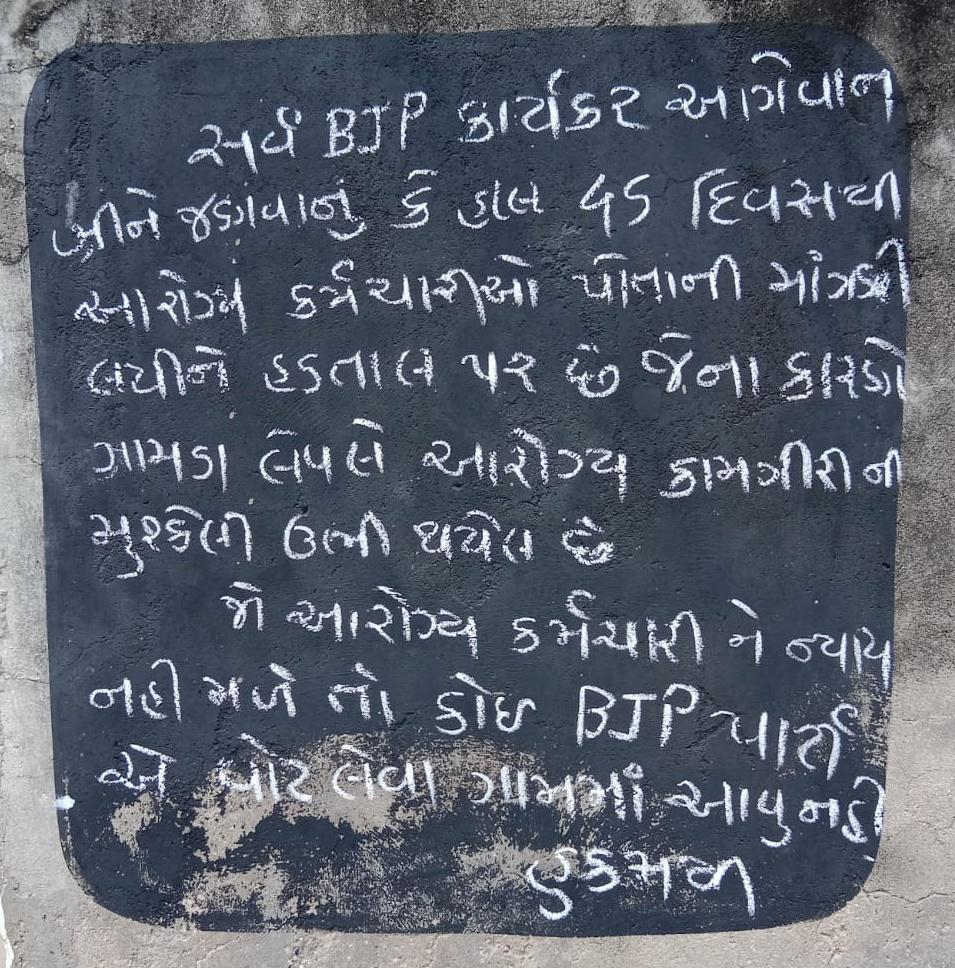 સર્વ BJP કાર્યકર આગેવાન
શ્રીને જણાવાનું કે હાલ ૪૫ દિવસથી
આરોગ્ય કર્મચારીઓ પોતાની માંગણી
લયીને હડતાલ પર છે જેના કારણે
ગામડા લેવલે આરોગ્ય કામગીરી ની
મુશ્કેલી ઉભી થયેલ છે
જો આરોગ્ય કર્મચારી ને ન્યાય
નહી મળે તો કોઇ BJP પાર્ટી
એ વોટ લેવા ગામમાં આવુ નહી